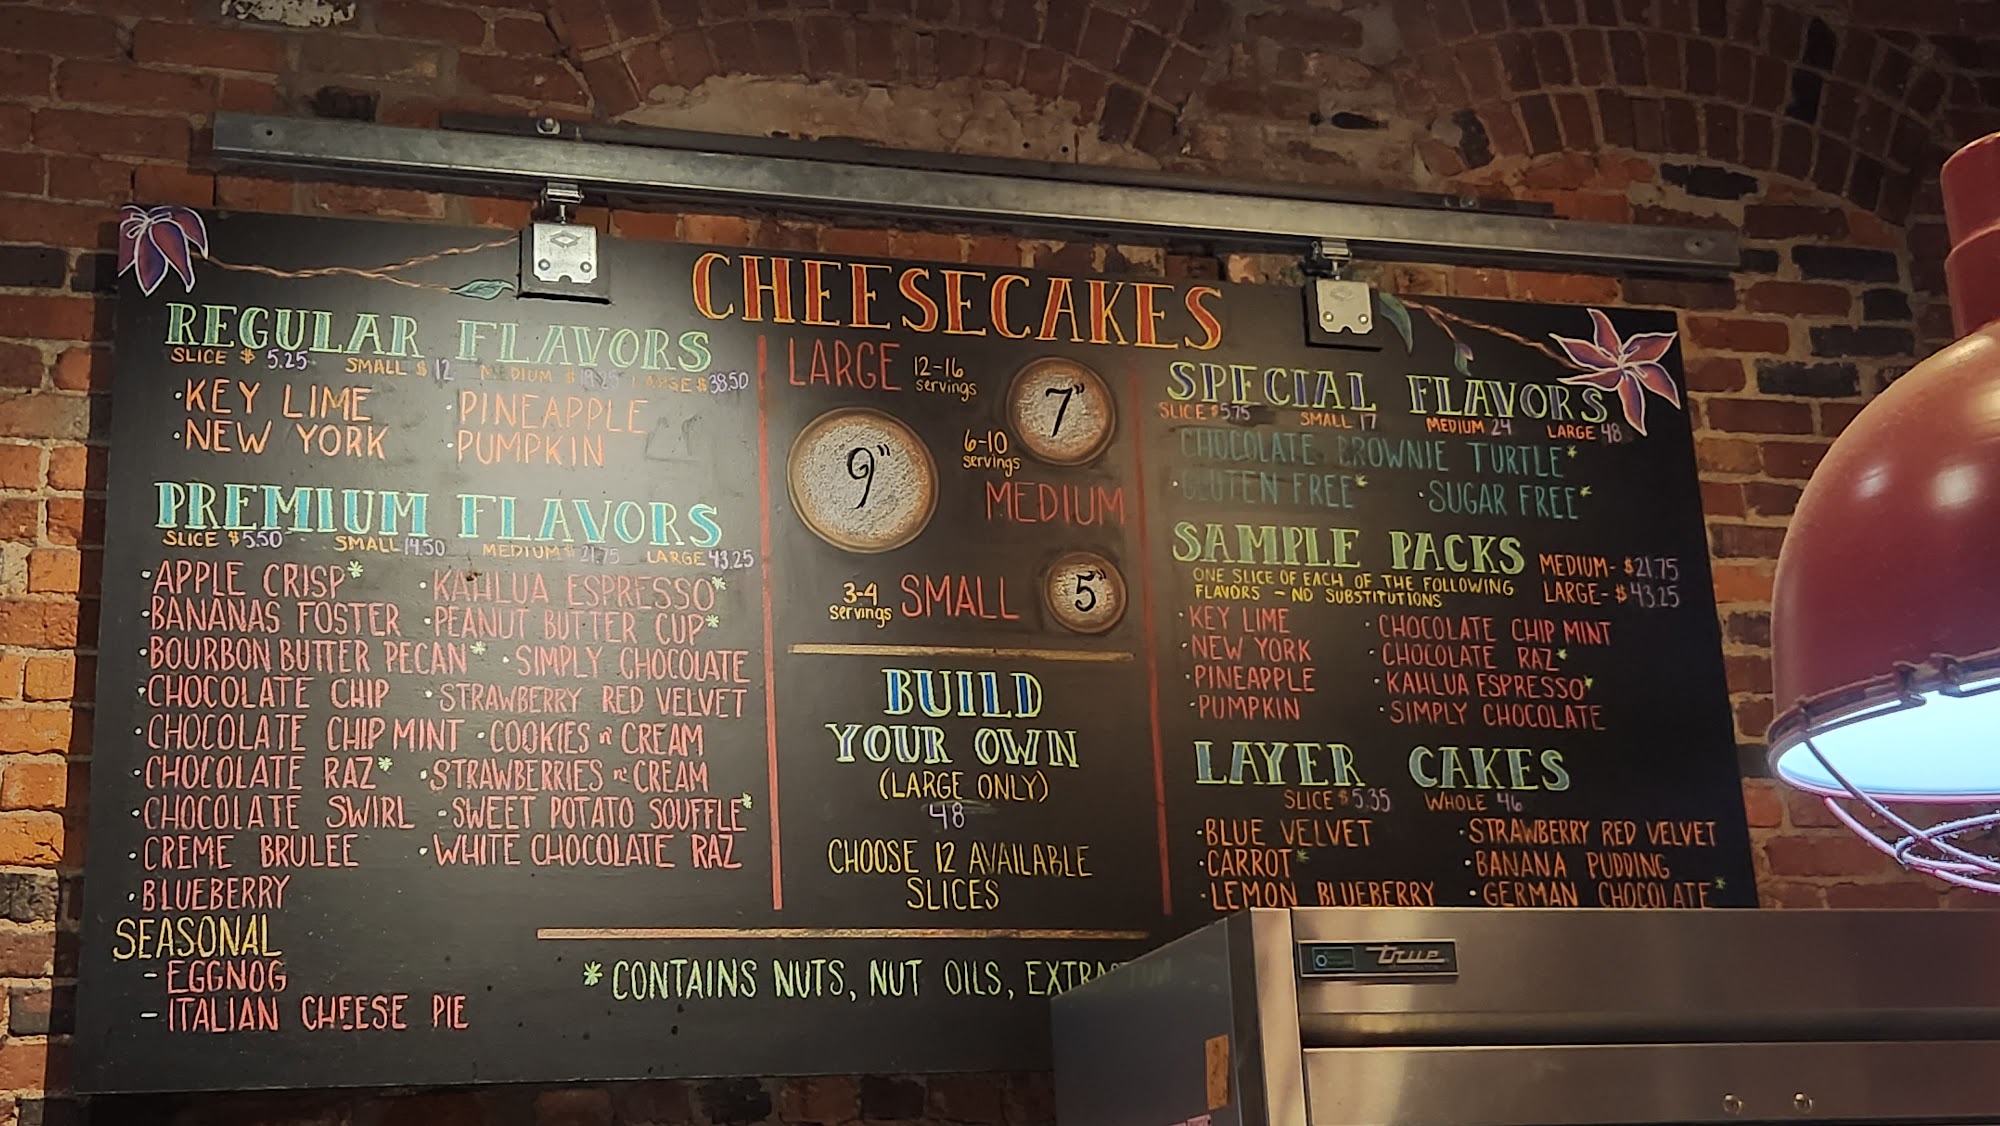 CHEESECAKES
REGULAR FLAVORS
SLICE $ 5.25 SMALL $ 12 MEDIUM $ 19.25 LARGE $ 38.50
· KEY LIME · PINEAPPLE
· NEW YORK · PUMPKIN
PREMIUM FLAVORS
SLICE $5.50 SMALL 14.50 MEDIUM $ 21.75 LARGE 43.25
· APPLE CRISP* · KAHLUA ESPRESSO*
· BANANAS FOSTER · PEANUT BUTTER CUP*
· BOURBON BUTTER PECAN* · SIMPLY CHOCOLATE
· CHOCOLATE CHIP · STRAWBERRY RED VELVET
· CHOCOLATE CHIP MINT · COOKIES n' CREAM
· CHOCOLATE RAZ* · STRAWBERRIES n' CREAM
· CHOCOLATE SWIRL · SWEET POTATO SOUFFLE*
· CREME BRULEE · WHITE CHOCOLATE RAZ
· BLUEBERRY
SEASONAL
- EGGNOG
- ITALIAN CHEESE PIE
LARGE 12-16
servings
9"
7"
6-10
servings
MEDIUM
3-4
servings SMALL 5"
BUILD
YOUR OWN
(LARGE ONLY)
48
CHOOSE 12 AVAILABLE
SLICES
* CONTAINS NUTS, NUT OILS,
SPECIAL FLAVORS
SLICE $5.75 SMALL 17 MEDIUM 24 LARGE 48
CHOCOLATE BROWNIE TURTLE*
· GLUTEN FREE* · SUGAR FREE*
SAMPLE PACKS MEDIUM- $21.75
ONE SLICE OF EACH OF THE FOLLOWING LARGE- $43.25
FLAVORS - NO SUBSTITUTIONS
· KEY LIME · CHOCOLATE CHIP MINT
· NEW YORK · CHOCOLATE RAZ*
· PINEAPPLE · KAHLUA ESPRESSO*
· PUMPKIN · SIMPLY CHOCOLATE
LAYER CAKES
SLICE $5.35 WHOLE 46
· BLUE VELVET · STRAWBERRY RED VELVET
· CARROT* · BANANA PUDDING
· LEMON BLUEBERRY · GERMAN CHOCOLATE*
true